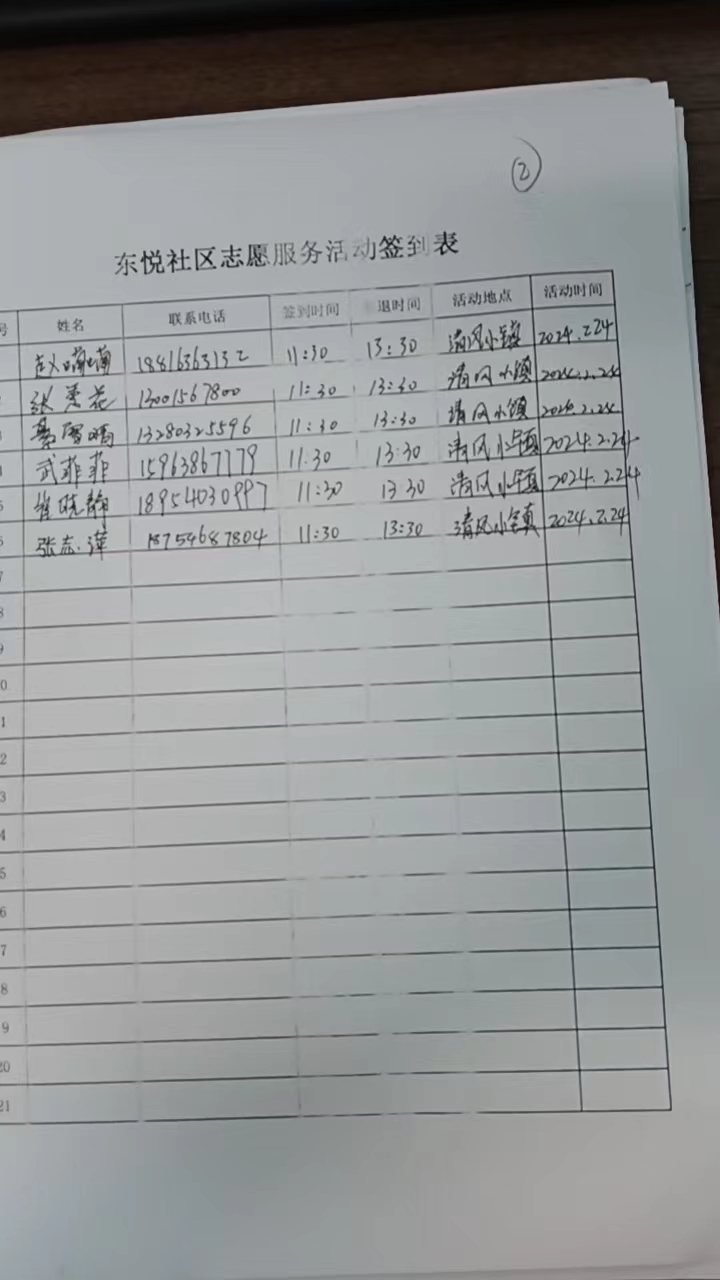 ②
东悦社区志愿服务活动签到表
号 姓名 联系电话 签到时间 退时间 活动地点 活动时间
赵喃喃 18816363132 11:30 13:30 清风小镇 2024.2.24
张 花 13001567800 11:30 13:30 清风小镇 2024.2.24
13280325596 11:30 13:30 清风小镇 2024.2.24
武菲菲 15963867779 11:30 13:30 清风小镇 2024.2.24
5 崔晓静 18954030997 11:30 13:30 清风小镇 2024.2.24
6 张志萍 18754687804 11:30 13:30 清风小镇 2024.2.24
7
8
9
0
1
2
3
4
5
6
7
8
9
20
21